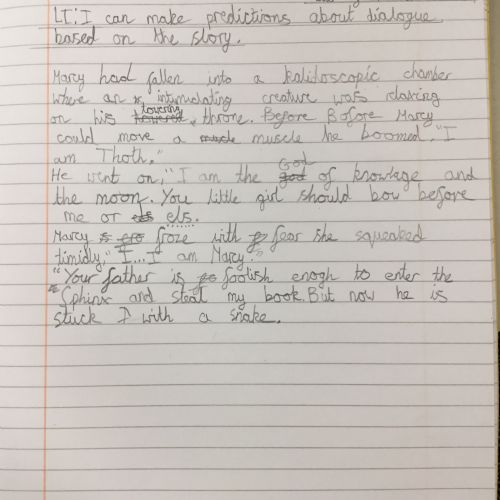 LI: I can make predictions about dialogue
based on the story.
Marcy had fallen into a kalidoscopic chamber
where an intimidating creature was relaxing
on his towering throne. Before Before Marcy
could move a muscle muscle he boomed, "I
am Thoth."
He went on, "I am the God of knowlage and
the moon. You little girl should bow before
me or els.
Marcy froze with fear she squeaked
timidly, "I...I am Marcy."
"Your father is foolish enogh to enter the
Sphinx and steal my book. But now he is
stuck I with a snake.